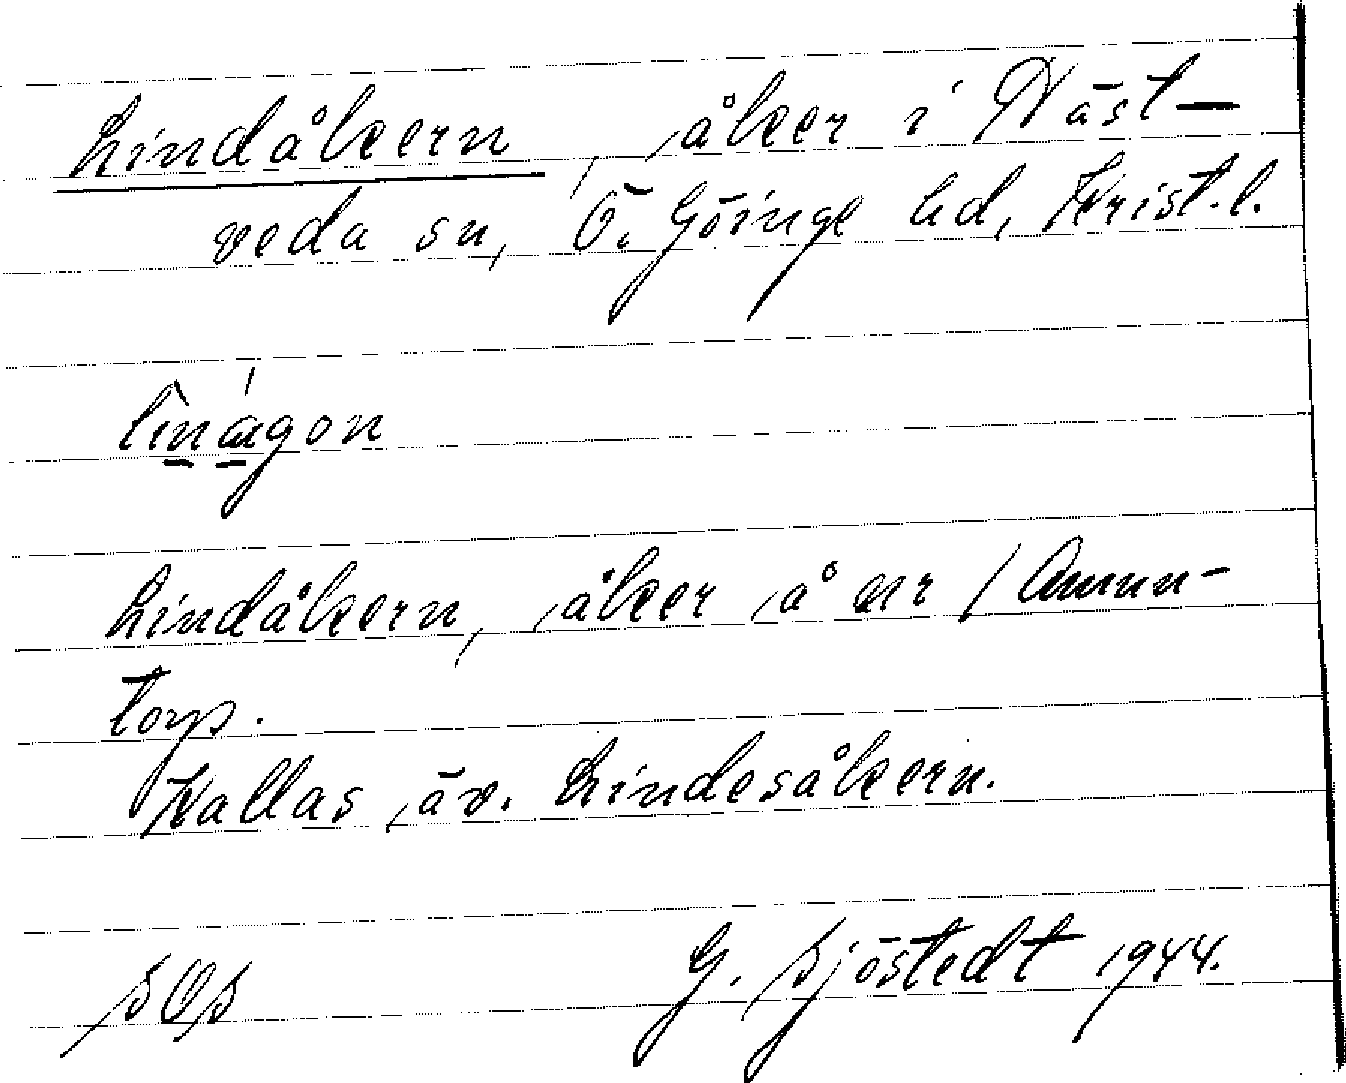 Lindåkern, åker i Näst-
veda sn, Ö. Göinge hd, Krist. l.
Lindåkern, åker å nr 1 Amun-
torp.
Kallas äv. Lindesåkern.
SOS G. Sjöstedt 1944.